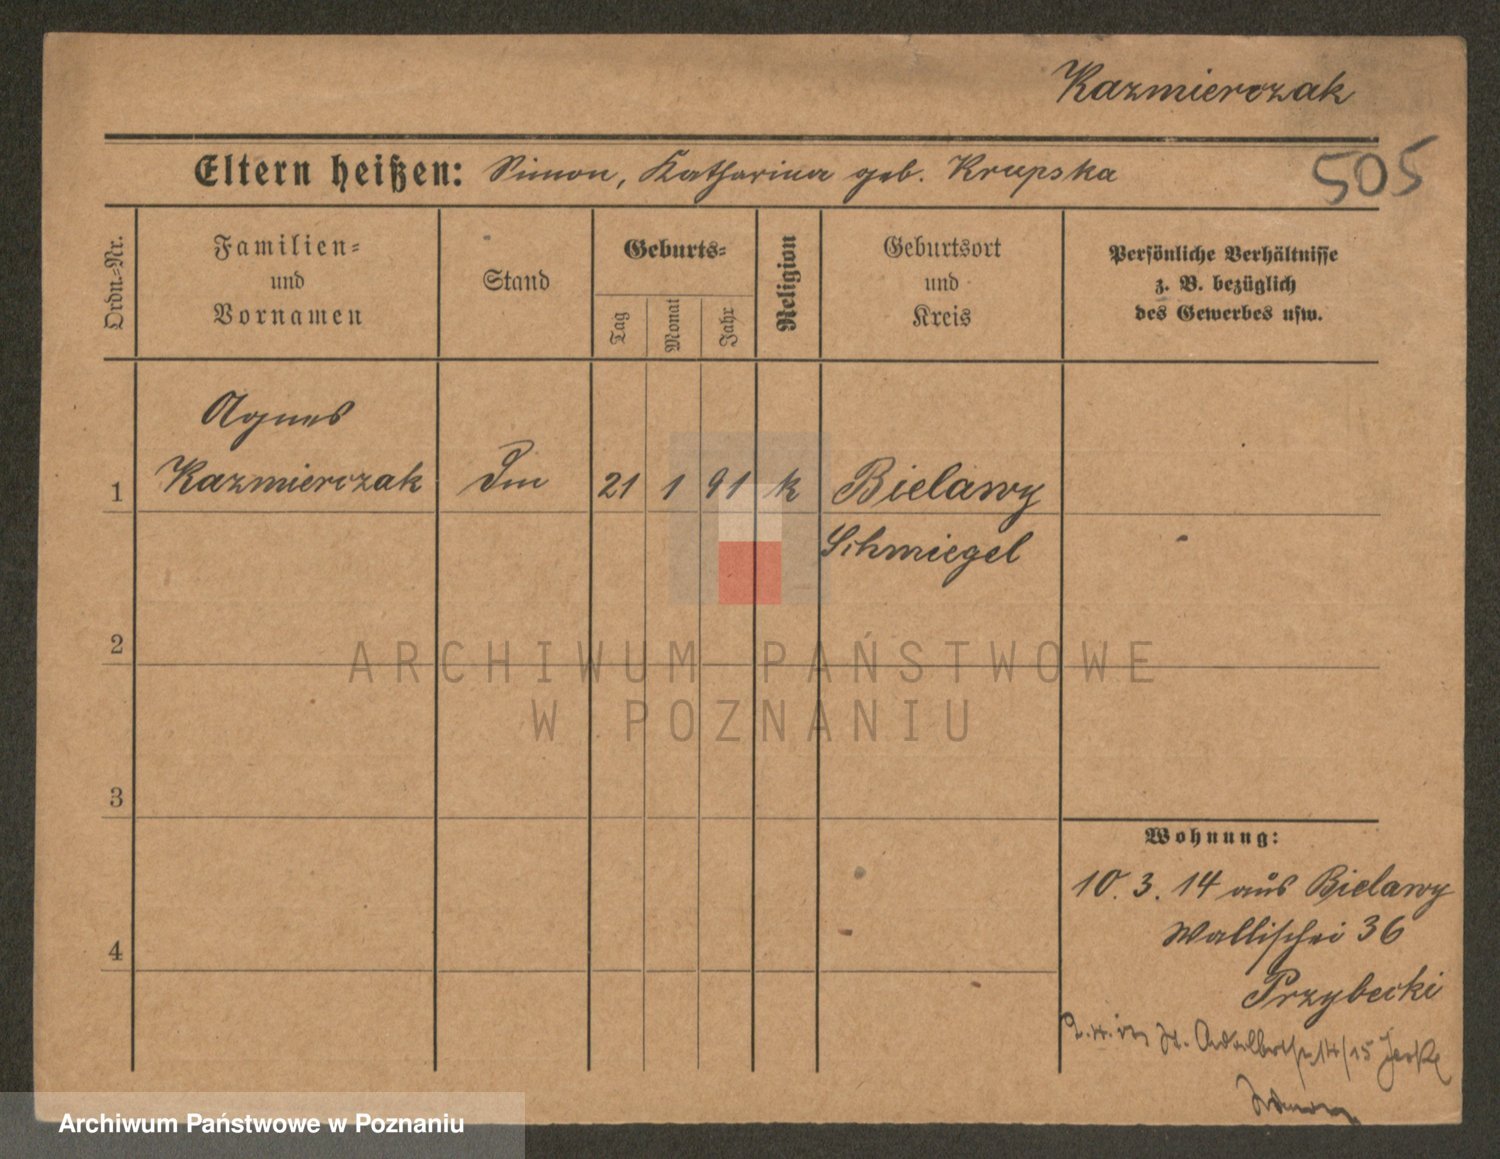 Kazmierczak
Eltern heißen: Simon, Katharina geb. Krupska
505
Ordn.-Nr.
Familien- und Vornamen
Stand
Geburts-
Tag
Monat
Jahr
Religion
Geburtsort und Kreis
Persönliche Verhältnisse
z. B. bezüglich
des Gewerbes usw.
Agnes
1 Kazmierczak 21 1 91 k Bielawy
Schmiegel
2
3
4
Wohnung:
10. 3. 14 aus Bielawy
Wallischei 36
Przybecki
St. Adalbertstr 14/15
ARCHIWUM PAŃSTWOWE
W POZNANIU
Archiwum Państwowe w Poznaniu